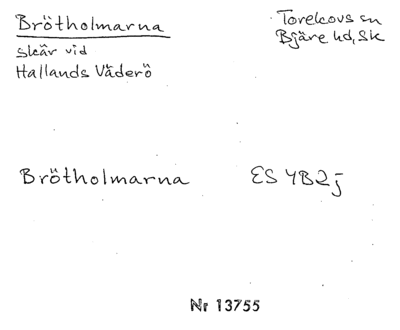 Brötholmarna
skär vid
Hallands Väderö
Torekovs sn
Bjäre hd, Sk
Brötholmarna
ES 4B2j
Nr 13755